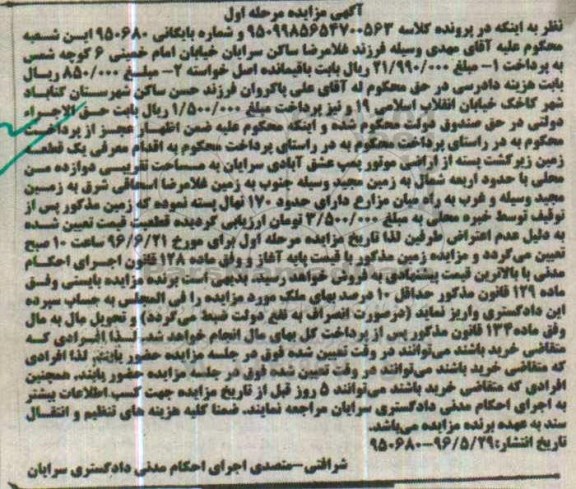 آگهی مزایده مرحله اول
نظر به اینکه در پرونده کلاسه ۹۵۰۹۹۸۵۶۵۴۷۰۰۵۶۳ و شماره بایگانی ۹۵۰۶۸۰ این شعبه
محکوم علیه آقای مهدی وسیله فرزند غلامرضا ساکن سرایان خیابان امام خمینی ۶ کوچه شمس
به پرداخت ۱- مبلغ ۲۱/۹۹۰/۰۰۰ ریال بابت باقیمانده اصل خواسته ۲- مبلغ ۸۵۰/۰۰۰ ریال
بابت هزینه دادرسی در حق محکوم له آقای علی پاکروان فرزند حسن ساکن شهرستان گناباد
شهر کاخک خیابان انقلاب اسلامی ۱۹ و نیز پرداخت مبلغ ۱/۵۰۰/۰۰۰ ریال بابت حق الاجراء
دولتی در حق صندوق دولت محکوم شده و اینکه محکوم علیه ضمن اظهار عجز از پرداخت
محکوم به در راستای پرداخت محکوم به در راستای پرداخت محکوم به اقدام معرفی یک قطعه
زمین زیرکشت پسته از اراضی موتور پمپ عشق آبادی سرایان به مساحت تقریبی دوازده من
محلی با حدود اربعه شمال به زمین مجید وسیله جنوب به زمین غلامرضا اسحاقی شرق به زمین
مجید وسیله و غرب به راه میان مزارع دارای حدود ۱۷۰ نهال پسته نموده که زمین مذکور پس از
توقیف توسط خبره محلی به مبلغ ۳/۵۰۰/۰۰۰ تومان ارزیابی گردیده قطعیت قیمت تعیین شده
به دلیل عدم اعتراض طرفین لذا تاریخ مزایده مرحله اول برای مورخ ۹۶/۶/۲۱ ساعت ۱۰ صبح
تعیین می‌گردد و مزایده زمین مذکور با قیمت پایه آغاز و وفق ماده ۱۲۸ قانون اجرای احکام
مدنی با بالاترین قیمت پیشنهادی به فروش خواهد رسید. بدیهی است برنده مزایده بایستی وفق
ماده ۱۲۹ قانون مذکور حداقل ۱۰ درصد بهای ملک مورد مزایده را فی المجلس به حساب سپرده
این دادگستری واریز نماید (درصورت انصراف به نفع دولت ضبط می‌گردد) و تحویل مال به مال
وفق ماده ۱۳۴ قانون مذکور پس از پرداخت کل بهای مال انجام خواهد شد. لذا افرادی که
متقاضی خرید باشند می‌توانند در وقت تعیین شده فوق در جلسه مزایده حضور یابند. لذا افرادی
که متقاضی خرید باشند می‌توانند در وقت تعیین شده فوق در جلسه مزایده حضور یابند. همچنین
افرادی که متقاضی خرید باشند می‌توانند ۵ روز قبل از تاریخ مزایده جهت کسب اطلاعات بیشتر
به اجرای احکام مدنی دادگستری سرایان مراجعه نمایند. ضمنا کلیه هزینه های تنظیم و انتقال
سند به عهده برنده مزایده می‌باشد.
تاریخ انتشار: ۹۶/۵/۲۹-۹۵۰۶۸۰
شرافتی-متصدی اجرای احکام مدنی دادگستری سرایان